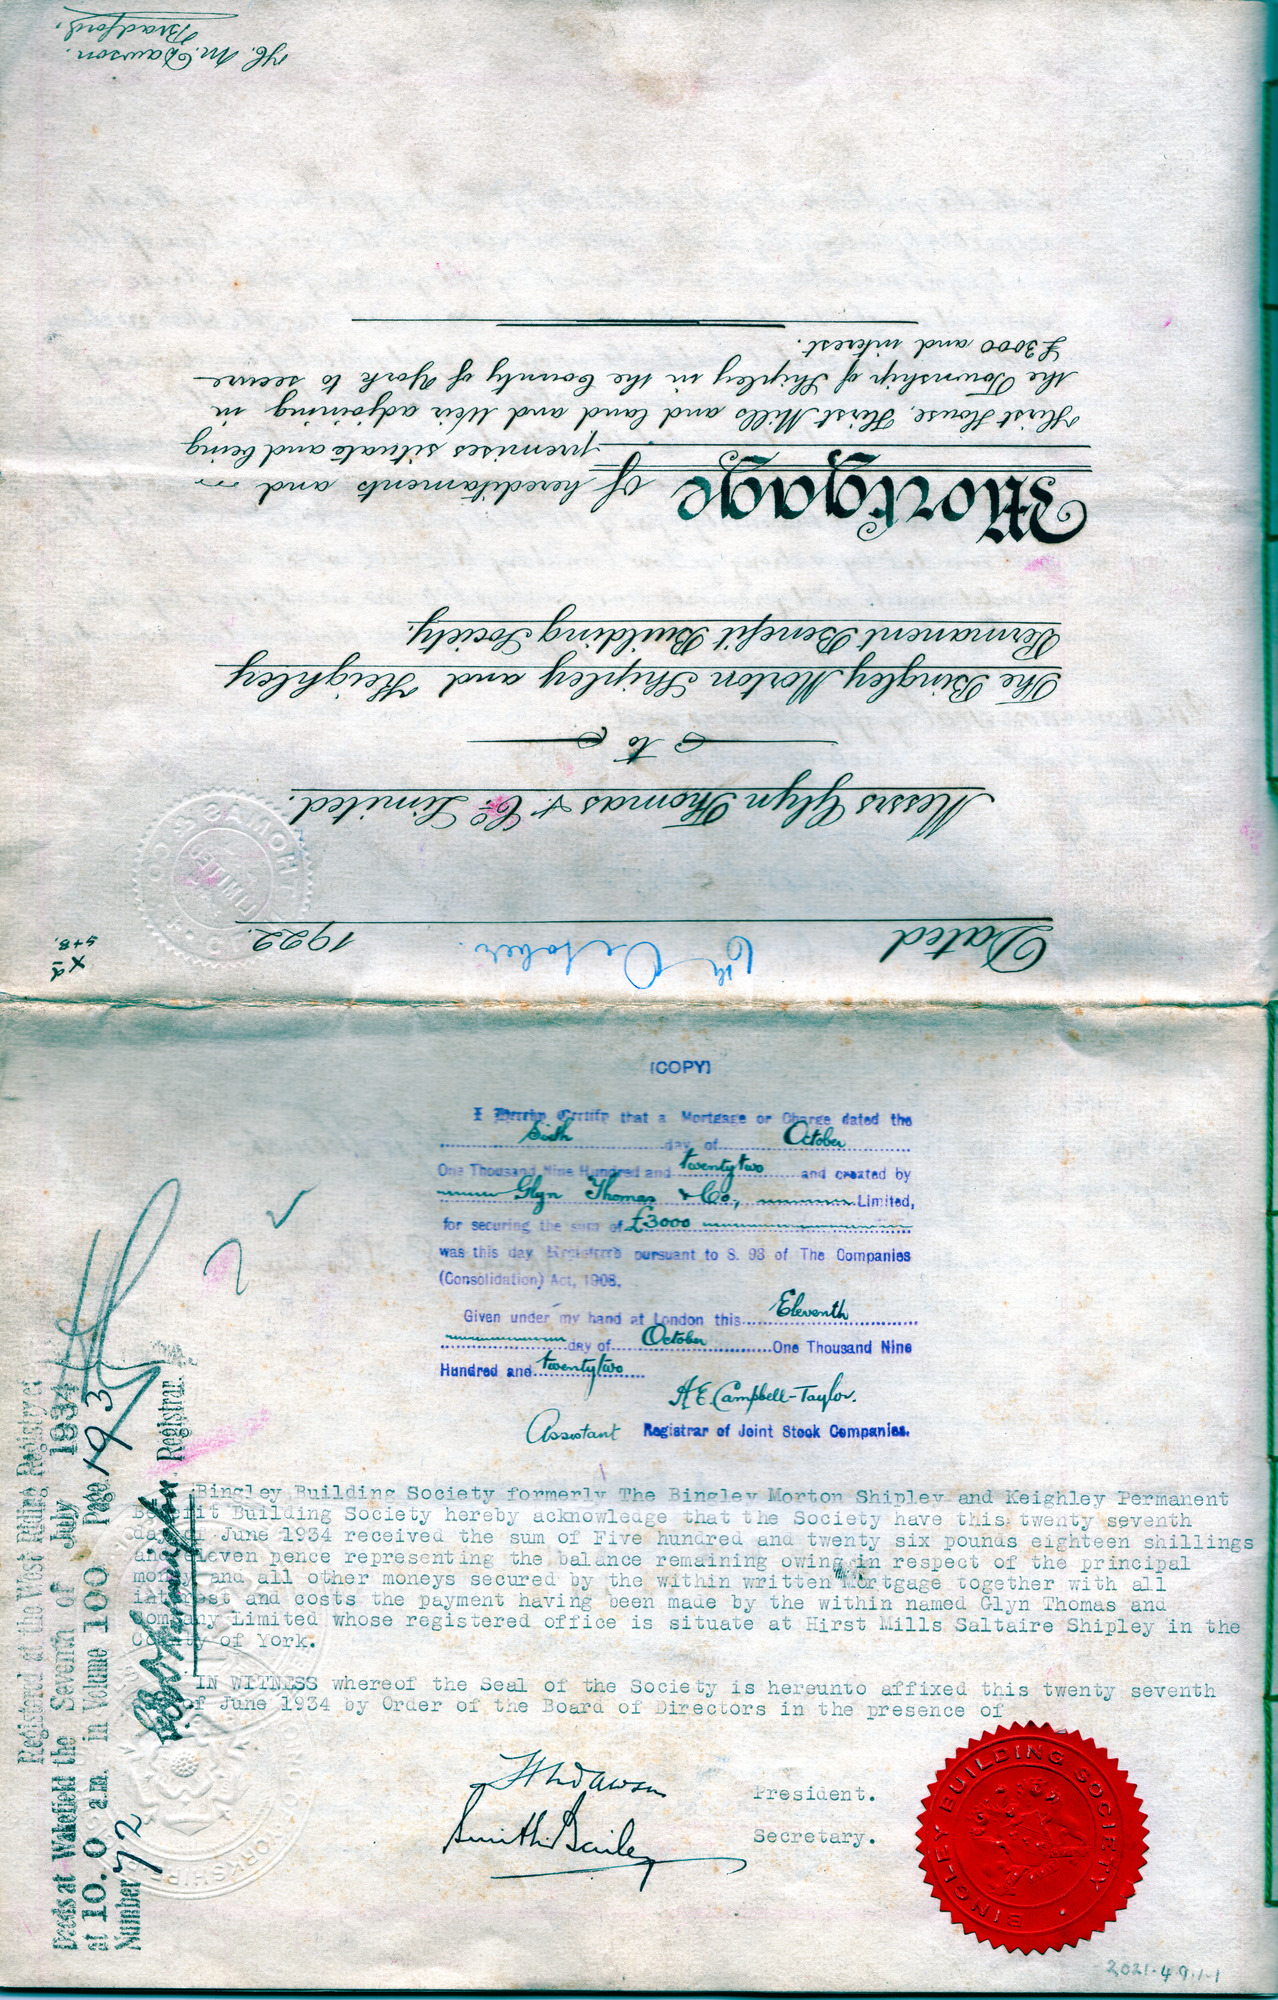 Dated 6th October 1922.
X d
5+8.
Messrs Glyn Thomas & Co. Limited.
to
The Bingley Morton Shipley and Keighley
Permanent Benefit Building Society.
Mortgage of hereditaments and
premises situate and being
Hirst House, Hirst Mills and land and weir adjoining in
the Township of Shipley in the County of York to secure
£3000 and interest.
H. M. Dawson.
Bradford.
(COPY)
I Hereby Certify that a Mortgage or Charge dated the
Sixth day of October
One Thousand Nine Hundred and twenty two and created by
Glyn Thomas & Co, Limited,
for securing the sum of £3000
was this day Registered pursuant to S. 93 of The Companies
(Consolidation) Act, 1908.
Given under my hand at London this Eleventh
day of October One Thousand Nine
Hundred and twenty two
A E Campbell-Taylor.
Assistant Registrar of Joint Stock Companies.
Bingley Building Society formerly The Bingley Morton Shipley and Keighley Permanent
Benefit Building Society hereby acknowledge that the Society have this twenty seventh
day of June 1934 received the sum of Five hundred and twenty six pounds eighteen shillings
and eleven pence representing the balance remaining owing in respect of the principal
money and all other moneys secured by the within written Mortgage together with all
interest and costs the payment having been made by the within named Glyn Thomas and
Company Limited whose registered office is situate at Hirst Mills Saltaire Shipley in the
County of York.
IN WITNESS whereof the Seal of the Society is hereunto affixed this twenty seventh
of June 1934 by Order of the Board of Directors in the presence of
President.
Smith Bailey
Secretary.
BINGLEY BUILDING SOCIETY
Registered at the West Riding Registry of
Deeds at Wakefield the Seventh of July 1934
at 10.0 a.m. in Volume 100 Page 193
Number 72
Registrar
THOMAS & CO
LIMITED
YORKSHIRE
2021.4.9.1.1